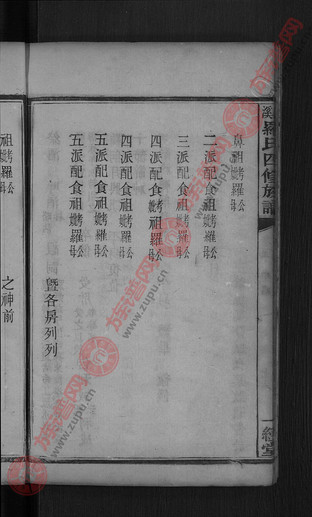 溪羅氏四修族譜
鼻祖考妣羅公母
二派配食祖考妣羅公母
三派配食祖考妣羅公母
四派配食祖考妣羅公母
四派配食祖考妣羅公母
五派配食祖考妣羅公母
五派配食祖考妣羅公母
暨各房列列
祖考妣羅公母
之神前
族譜网
www.zupu.cn